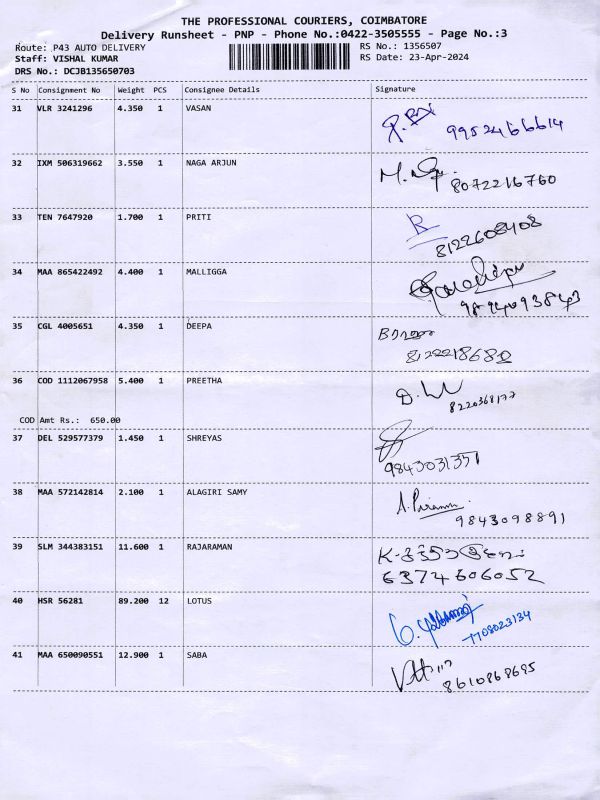 THE PROFESSIONAL COURIERS, COIMBATORE
Delivery Runsheet - PNP - Phone No.:0422-3505555 - Page No.:3
Route: P43 AUTO DELIVERY RS No.: 1356507
Staff: VISHAL KUMAR RS Date: 23-Apr-2024
DRS No.: DCJB135650703
S No Consignment No Weight PCS Consignee Details Signature
31 VLR 3241296 4.350 1 VASAN
9952466614
32 IXM 506319662 3.550 1 NAGA ARJUN
8072216760
33 TEN 7647920 1.700 1 PRITI
8122608408
34 MAA 865422492 4.400 1 MALLIGGA
9894093843
35 CGL 4005651 4.350 1 DEEPA
8122218680
36 COD 1112067958 5.400 1 PREETHA
8220368177
COD Amt Rs.: 650.00
37 DEL 529577379 1.450 1 SHREYAS
9843031351
38 MAA 572142814 2.100 1 ALAGIRI SAMY
9843098891
39 SLM 344383151 11.600 1 RAJARAMAN
6374606052
40 HSR 56281 89.200 12 LOTUS
7708023134
41 MAA 650090551 12.900 1 SABA
8610868695